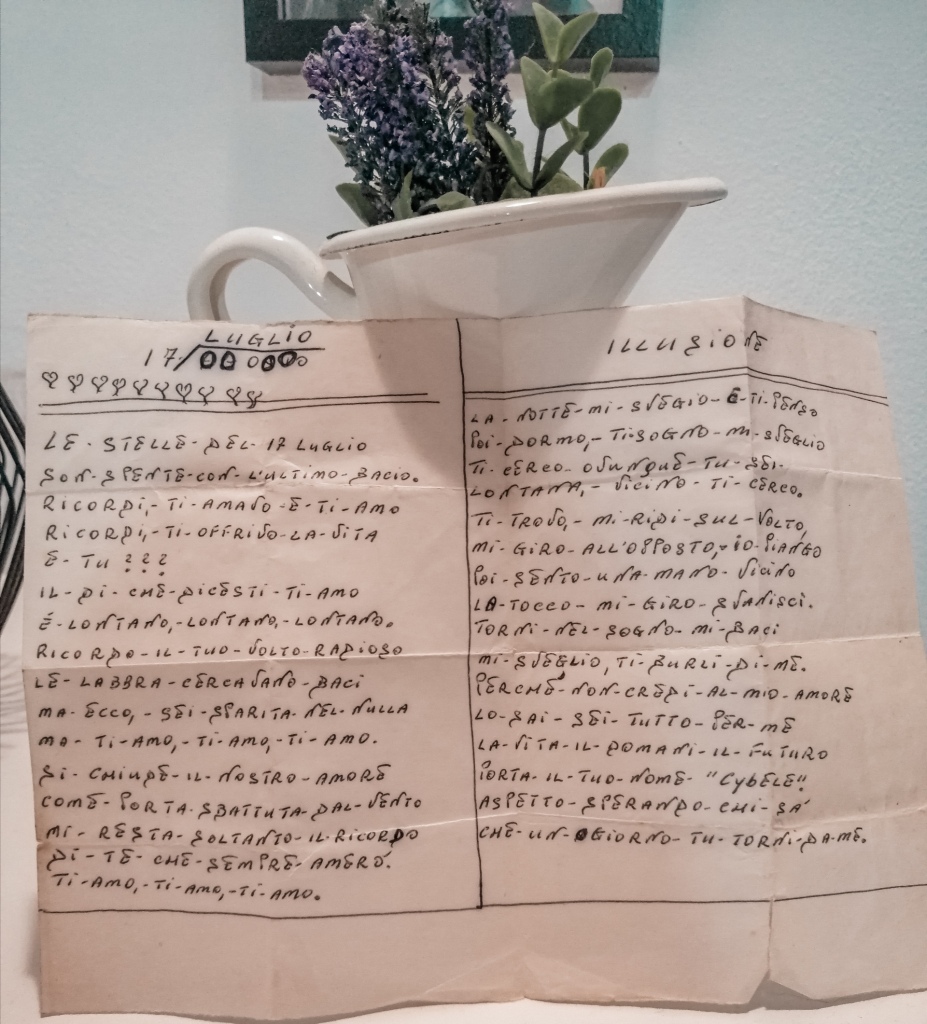 LUGLIO
17/00 0000
LE - STELLE - DEL - 17 LUGLIO
SON - SPENTE - CON - L'ULTIMO - BACIO.
RICORDI, - TI - AMAVO - E - TI - AMO
RICORDI, - TI - OFFRIVO - LA - VITA
E - TU ???
IL - DI - CHE - DICESTI - TI - AMO
É - LONTANO, - LONTANO, - LONTANO.
RICORDO - IL - TUO - VOLTO - RADIOSO
LE - LABBRA - CERCAVANO - BACI
MA - ECCO, - SEI - SPARITA - NEL - NULLA
MA - TI - AMO, - TI - AMO, - TI - AMO.
SI - CHIUDE - IL - NOSTRO - AMORE
COME - PORTA - SBATTUTA - DAL - VENTO
MI - RESTA - SOLTANTO - IL - RICORDO
DI - TE - CHE - SEMPRE - AMERÓ.
TI - AMO, - TI - AMO, - TI - AMO.
ILLUSIONE
LA - NOTTE - MI - SVEGIO - E - TI - PENSO
POI - DORMO, - TI SOGNO - MI - SVEGLIO
TI - CERCO - OVUNQUE - TU - SEI.
LONTANA, - VICINO - TI - CERCO.
TI - TROVO, - MI - RIDI - SUL - VOLTO,
MI - GIRO - ALL'OPPOSTO, - IO - PIANGO
POI - SENTO - UNA - MANO - VICINO
LA - TOCCO - MI - GIRO - SVANISCI.
TORNI - NEL - SOGNO - MI - BACI
MI - SVEGLIO, TI - BURLI - DI - ME.
PERCHÉ - NON - CREDI - AL - MIO - AMORE
LO - SAI - SEI - TUTTO - PER - ME
LA - VITA - IL - DOMANI - IL - FUTURO
PORTA - IL - TUO - NOME - "CYBELE".
ASPETTO - SPERANDO - CHI - SÁ
CHE - UN - GIORNO - TU - TORNI - DA - ME.